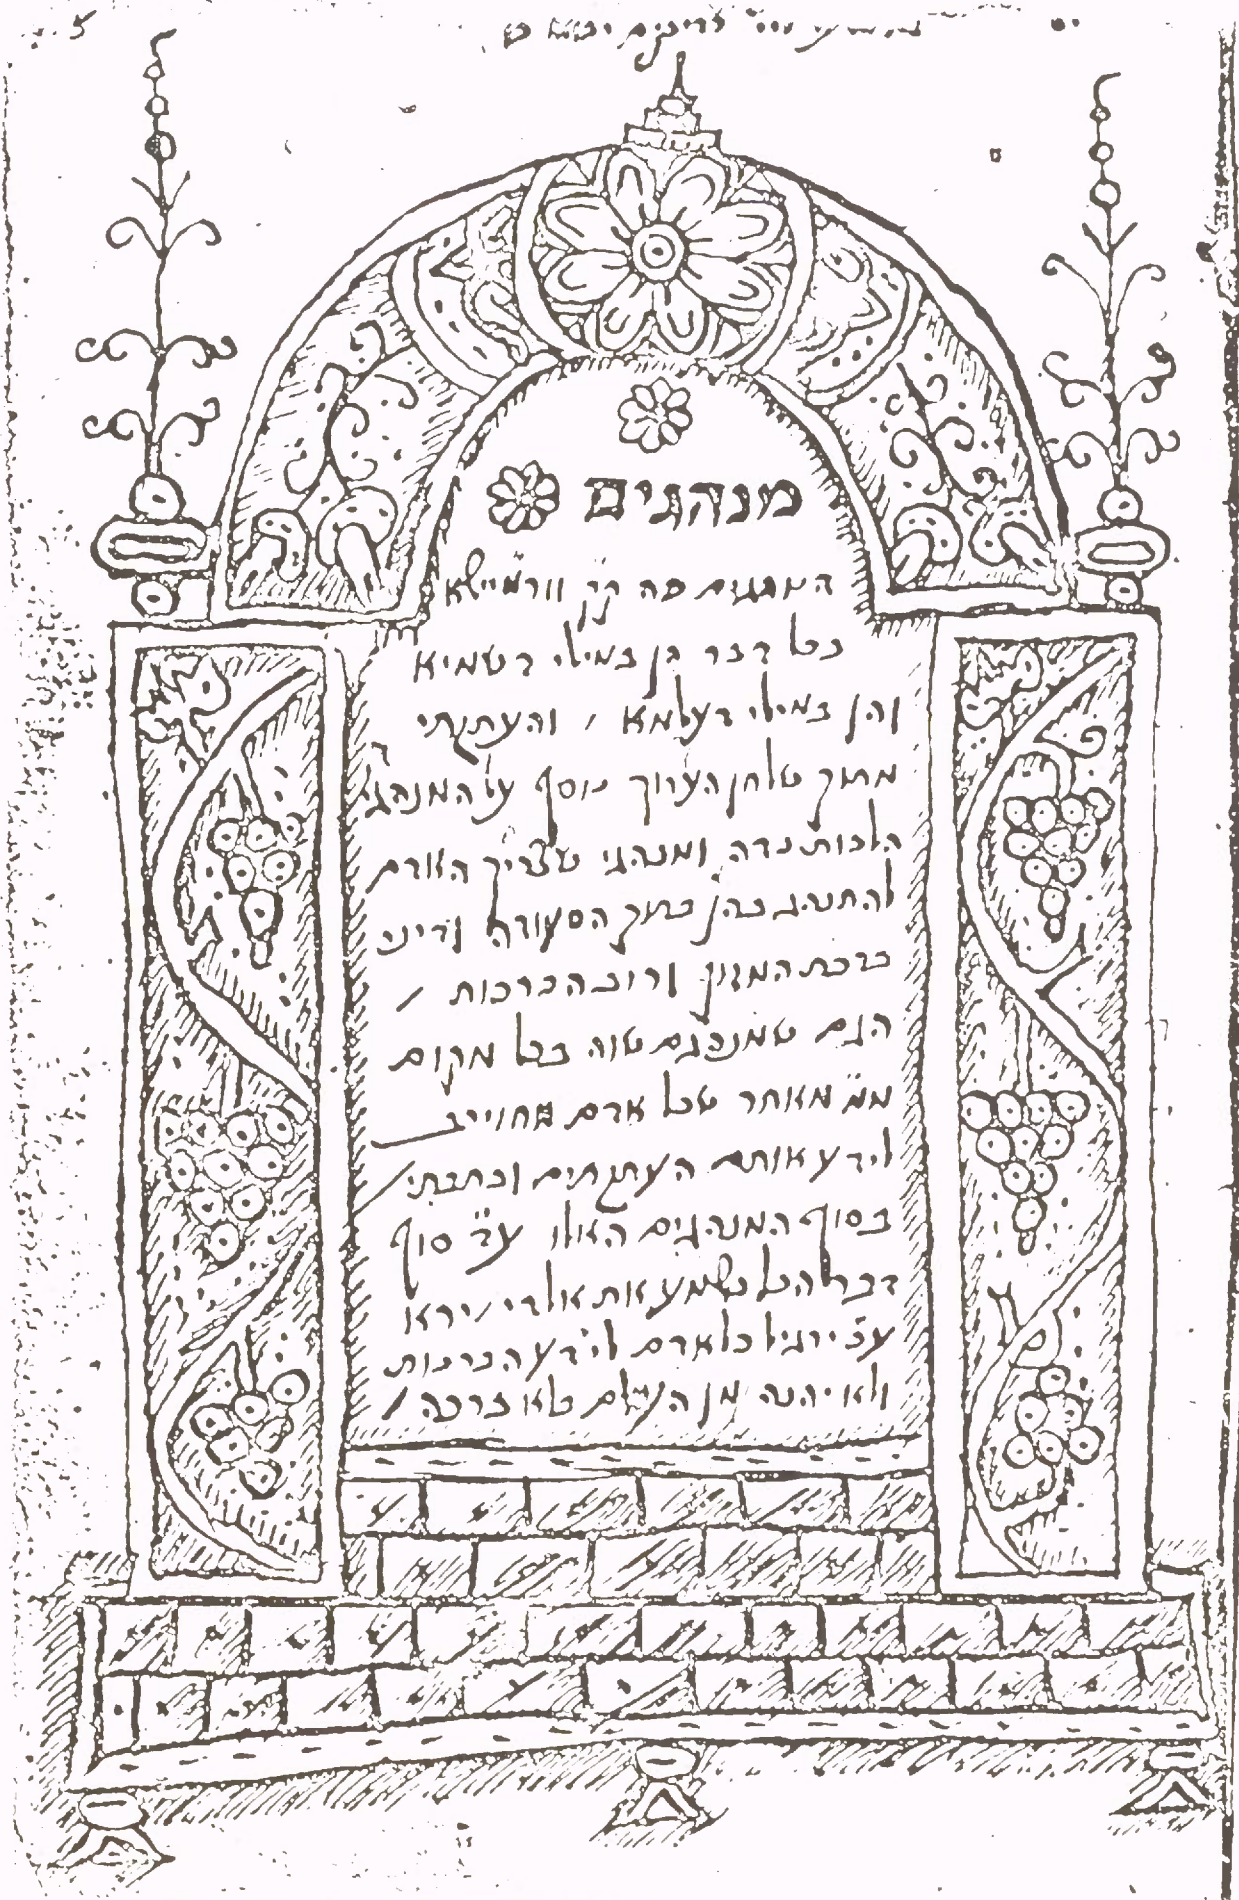 מנהגים
המנהגים פה ק״ק ווירמיישא
בכל דבר הן במילי דשמיא
והן במילי דעלמא / והעתקתי
מתוך שלחן הערוך נוסף על המנהגי׳
הלכות נדה ומנהגי שצריך האדם
להתנהג בהן בתוך הסעודה ודיני
ברכת המזון ורוב הברכות /
הגם שמנהגם שוה בכל מקום
מ״מ מאחר שכל אדם מחוייב
לידע אותם העתקתים וכתבתי /
בסוף המנהגים האלו ע״ד סוף
דבר הכל נשמע את אלדי׳ ירא ו
ע״כ ירגיל כל אדם לידע הברכות
ולא יהנה מן העולם בלא ברכה /